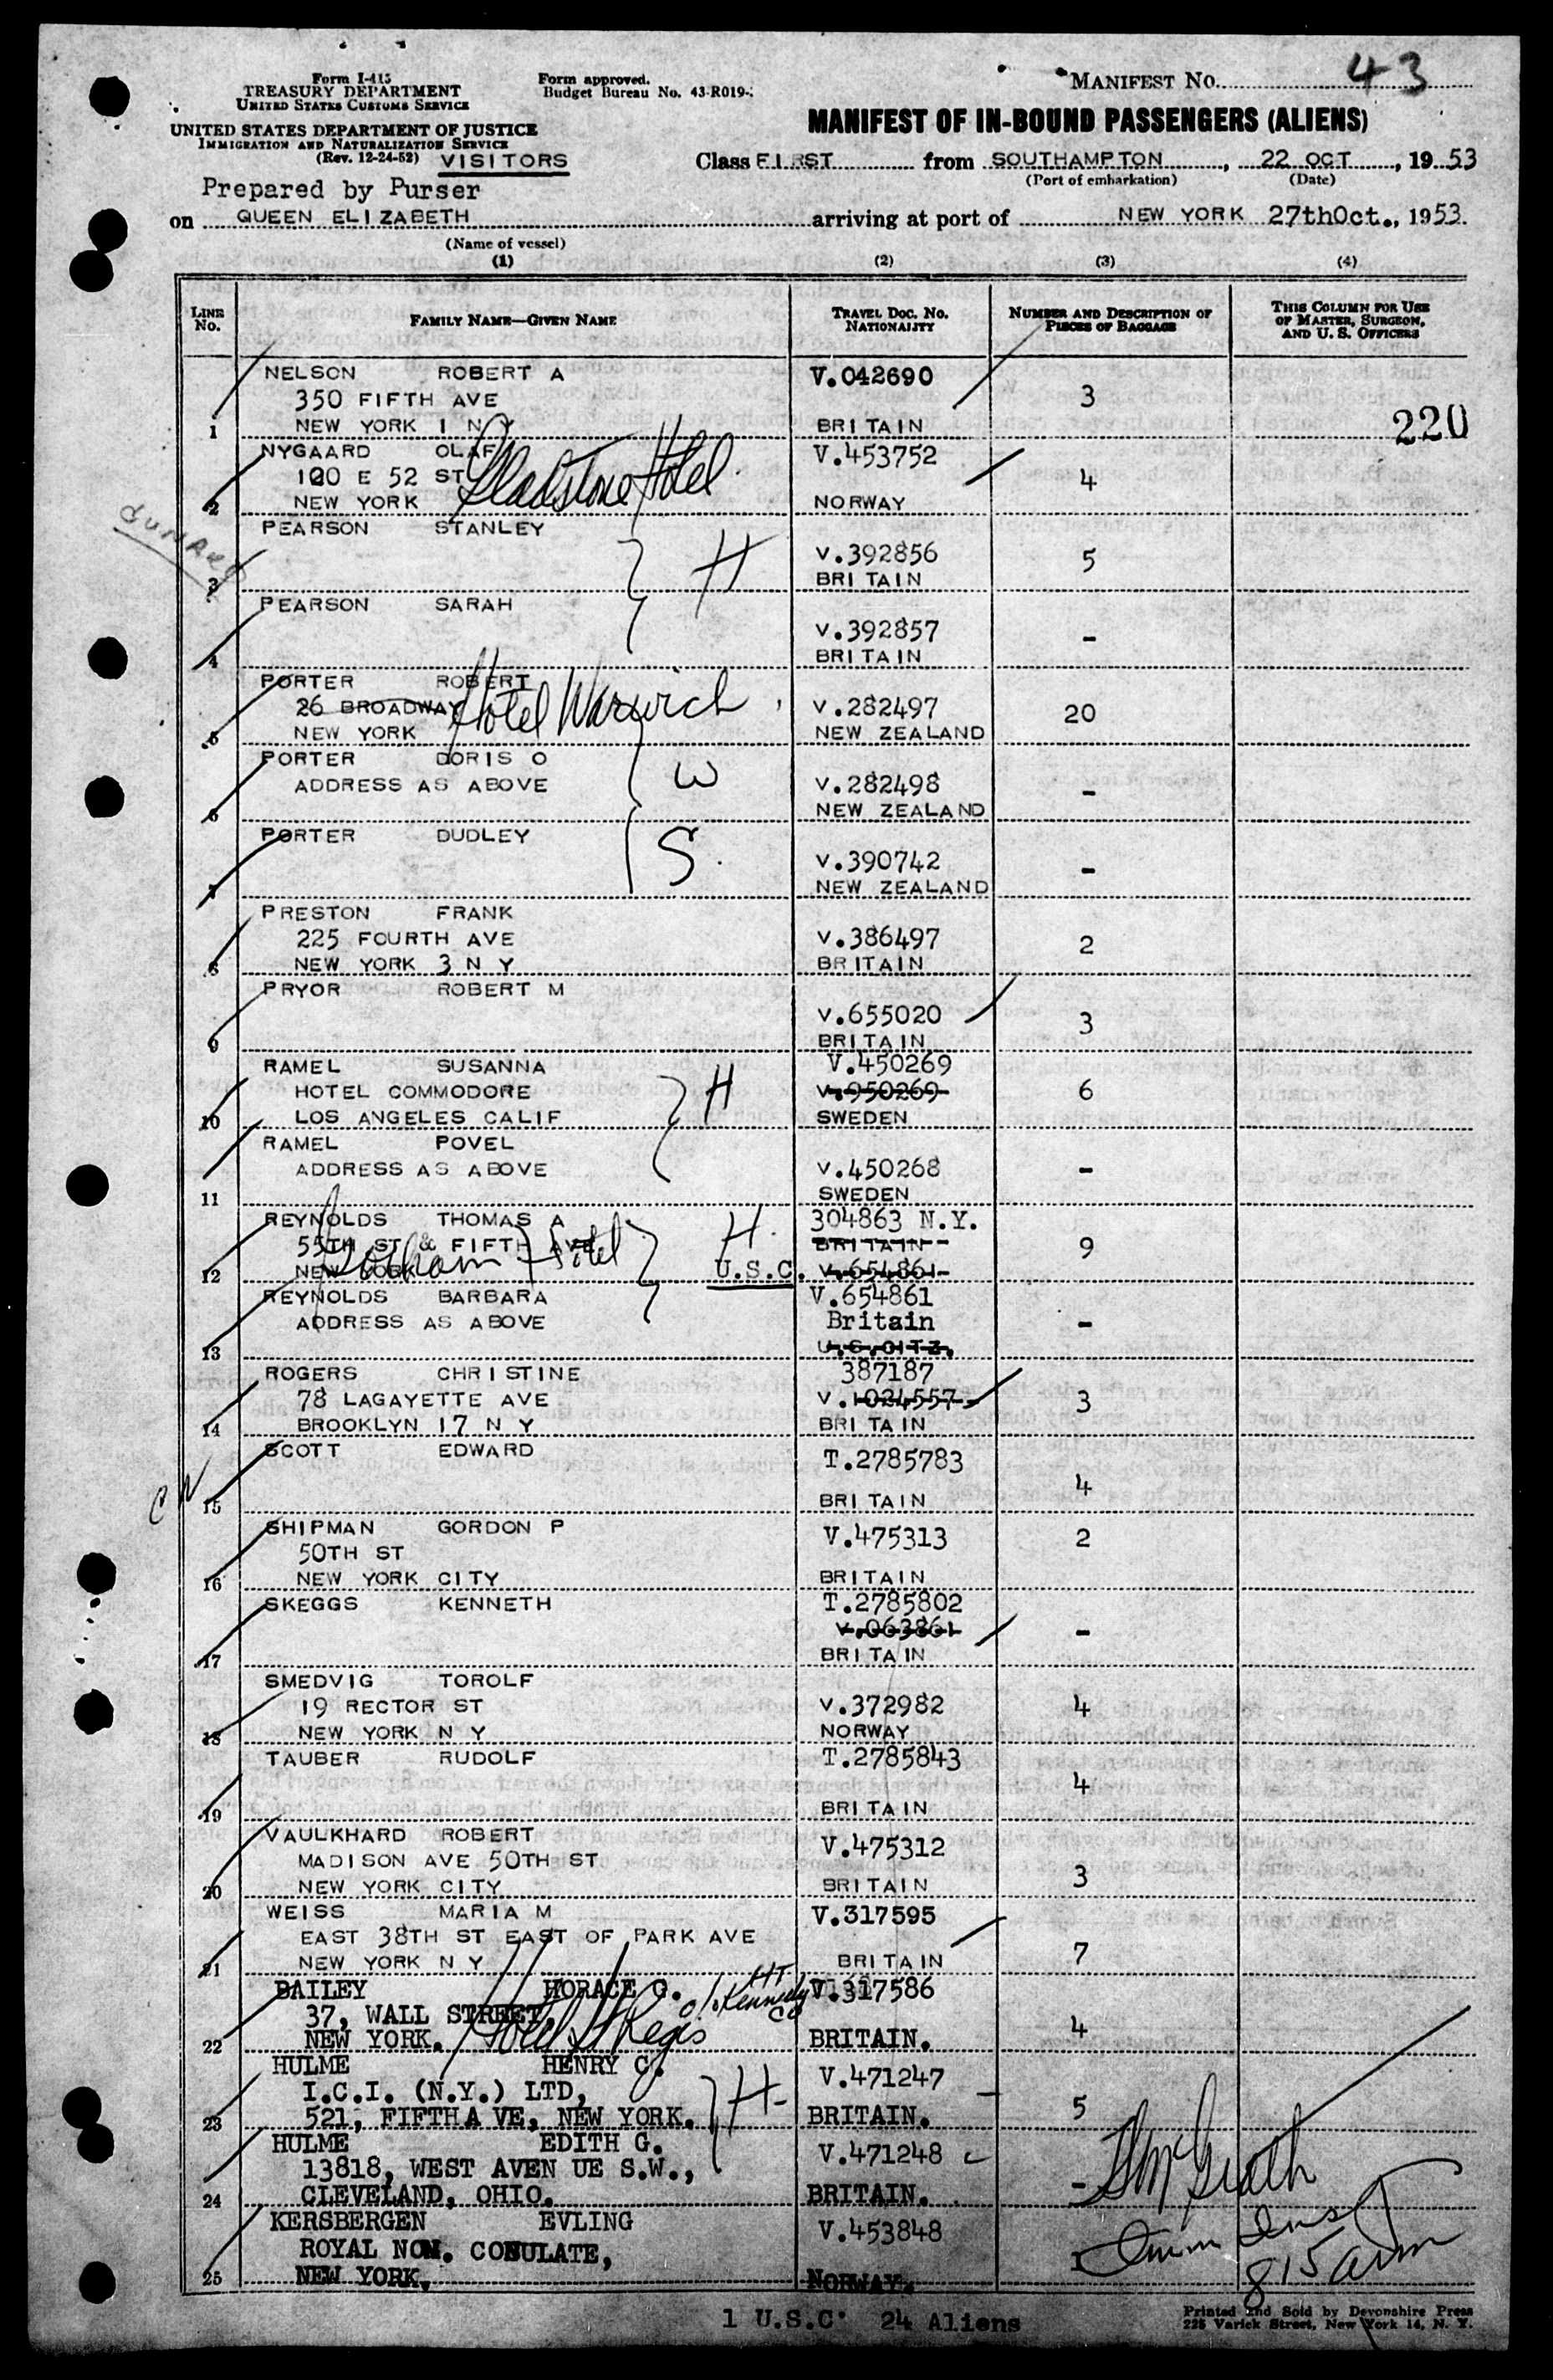 Form I-415
TREASURY DEPARTMENT
UNITED STATES CUSTOMS SERVICE
Form approved.
Budget Bureau No. 43-R019-
MANIFEST No. 43
UNITED STATES DEPARTMENT OF JUSTICE
IMMIGRATION AND NATURALIZATION SERVICE
(Rev. 12-24-52) VISITORS
MANIFEST OF IN-BOUND PASSENGERS (ALIENS)
Class FIRST from SOUTHAMPTON, 22 OCT, 19 53
(Port of embarkation) (Date)
Prepared by Purser
on QUEEN ELIZABETH arriving at port of NEW YORK 27thOct., 1953.
(Name of vessel)
(1) (2) (3) (4)
LINE No. FAMILY NAME—GIVEN NAME TRAVEL DOC. NO. NATIONALITY NUMBER AND DESCRIPTION OF PIECES OF BAGGAGE THIS COLUMN FOR USE OF MASTER, SURGEON, AND U. S. OFFICERS
NELSON ROBERT A V.042690
350 FIFTH AVE 3
1 NEW YORK 1 N Y BRITAIN 220
NYGAARD OLAF V.453752
100 E 52 ST Gladstone Hotel 4
2 NEW YORK NORWAY
CUNARD
PEARSON STANLEY
H v.392856 5
3 BRITAIN
PEARSON SARAH
v.392857 -
4 BRITAIN
PORTER ROBERT
26 BROADWAY Hotel Warwick v.282497 20
5 NEW YORK NEW ZEALAND
PORTER DORIS O
ADDRESS AS ABOVE W v.282498 -
6 NEW ZEALAND
PORTER DUDLEY
S. v.390742 -
7 NEW ZEALAND
PRESTON FRANK
225 FOURTH AVE v.386497 2
8 NEW YORK 3 N Y BRITAIN
PRYOR ROBERT M
v.655020 3
9 BRITAIN
RAMEL SUSANNA V.450269
HOTEL COMMODORE H v.950269 6
10 LOS ANGELES CALIF SWEDEN
RAMEL POVEL
ADDRESS AS ABOVE v.450268 -
11 SWEDEN
REYNOLDS THOMAS A H. 304863 N.Y.
55TH ST & FIFTH AVE Gotham Hotel BRITAIN 9
12 NEW YORK U.S.C. v.654861
REYNOLDS BARBARA V.654861
ADDRESS AS ABOVE Britain -
13 U.S.CITZ.
ROGERS CHRISTINE 387187
78 LAGAYETTE AVE v.1024557 3
14 BROOKLYN 17 N Y BRITAIN
SCOTT EDWARD T.2785783
4
15 BRITAIN
SHIPMAN GORDON P V.475313 2
50TH ST
16 NEW YORK CITY BRITAIN
SKEGGS KENNETH T.2785802
v.063861 -
17 BRITAIN
SMEDVIG TOROLF
19 RECTOR ST v.372982 4
18 NEW YORK N Y NORWAY
TAUBER RUDOLF T.2785843
4
19 BRITAIN
VAULKHARD ROBERT V.475312
MADISON AVE 50TH ST 3
20 NEW YORK CITY BRITAIN
WEISS MARIA M V.317595
EAST 38TH ST EAST OF PARK AVE 7
21 NEW YORK N Y BRITAIN
BAILEY HORACE G. V.317586
37, WALL STREET, Kennedy Co 4
22 NEW YORK. Hotel St Regis BRITAIN.
HULME HENRY C. V.471247
I.C.I. (N.Y.) LTD, H- 5
23 521, FIFTH A VE, NEW YORK. BRITAIN.
HULME EDITH G. V.471248
13818, WEST AVEN UE S.W., -
24 CLEVELAND, OHIO. BRITAIN.
KERSBERGEN EVLING V.453848
ROYAL NOW. CONULATE, 1 Imm Ins
25 NEW YORK. NORWAY. 815 am
1 U.S.C. 24 Aliens
Printed and Sold by Devonshire Press
225 Varick Street, New York 14, N. Y.